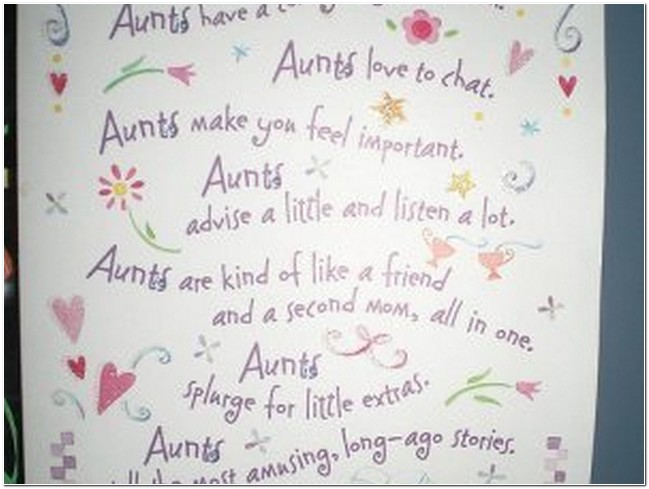 Aunts have a
Aunts love to chat.
Aunts make you feel important.
Aunts
advise a little and listen a lot.
Aunts are kind of like a friend
and a second mom, all in one.
Aunts
splurge for little extras.
Aunts
long-ago stories.
the most amusing,